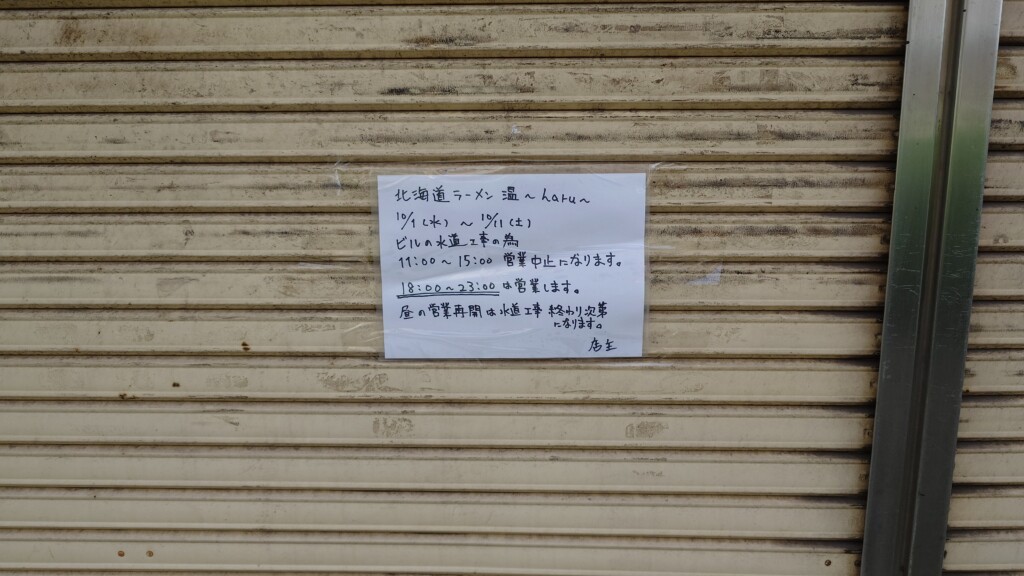 北海道ラーメン 温 ~haru~
10/1(水) ~ 10/11(土)
ビルの水道工事の為
11:00~15:00 営業中止になります。
18:00~23:00は営業します。
昼の営業再開は水道工事 終わり次第
になります。
店主